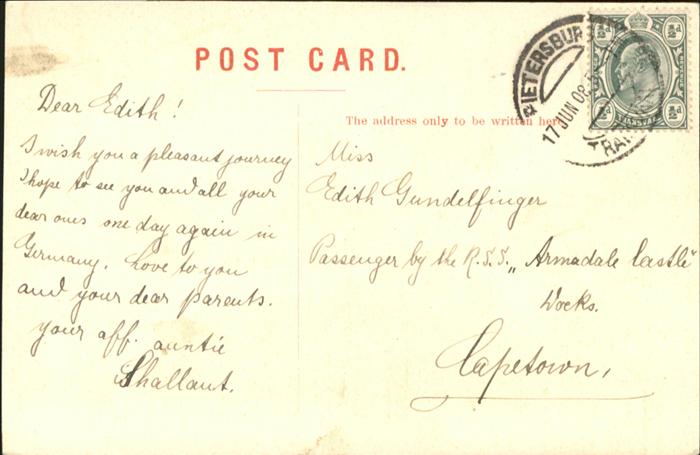 POST CARD.
Dear Edith!
I wish you a pleasant journey
I hope to see you and all your
dear ones one day again in
Germany. Love to you
and your dear parents.
your aff. auntie
Shallant.
The address only to be written here
Miss
Edith Gundelfinger
Passenger by the R.S.S. „Armadale Castle"
Docks.
Capetown,
PIETERSBURG
17 JUN 08
TRA
½d ½d
½d ½d
TRANSVAAL